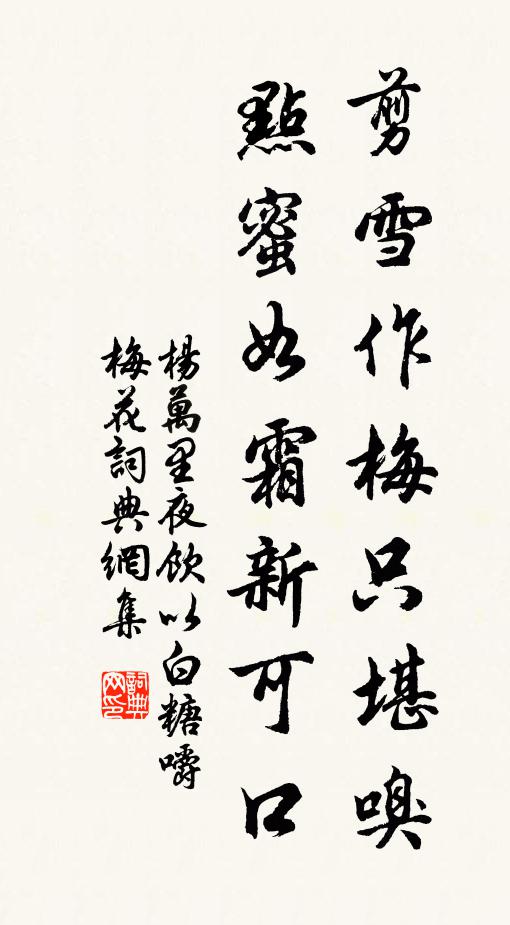 剪雪作梅只堪嗅
點蜜如霜新可口
楊萬里夜飲以白糖嚼
梅花詞典網集
詞典网印